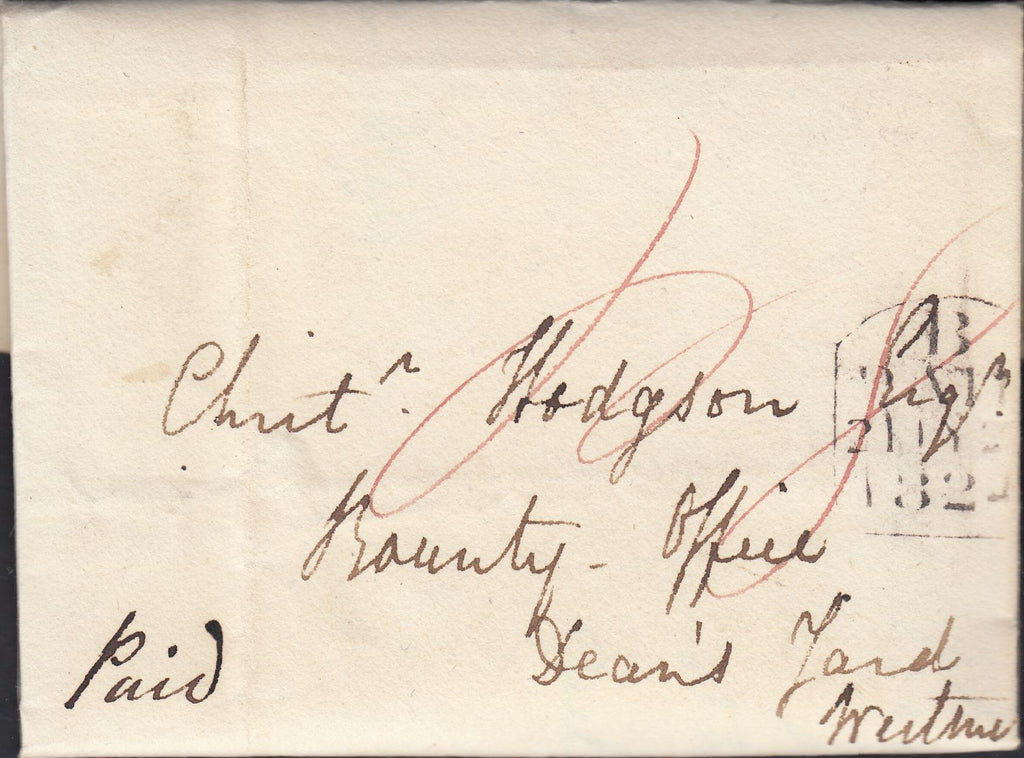 Christr. Hodgson Esqr.
Bounty - Office
Dean's Yard
Westmi
Paid
B
182